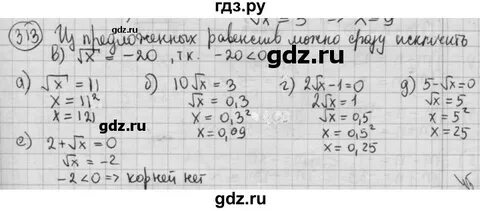 √x = 3 → x = 9
313 Из предложенных равенств можно сразу исключить
в) √x = -20, т.к. -20<0
а) √x = 11
x = 11²
x = 121
б) 10√x = 3
√x = 0,3
x = 0,3²
x = 0,09
г) 2√x - 1 = 0
2√x = 1
√x = 0,5
x = 0,5²
x = 0,25
д) 5 - √x = 0
√x = 5
x = 5²
x = 25
е) 2 + √x = 0
√x = -2
-2<0 => корней нет
gdz.ru
gdz.ru
gdz.ru
gdz.ru